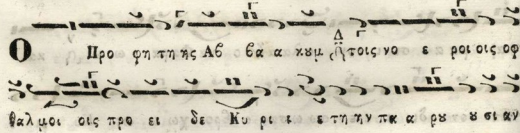 Ο Προ φη τη ης Αβ βα α κυμ τοις νο ε ροι οις οφ
θαλ μοι οις προ ει δε Κυ ρι ι ε τη ην πα α ρου ου σι αν